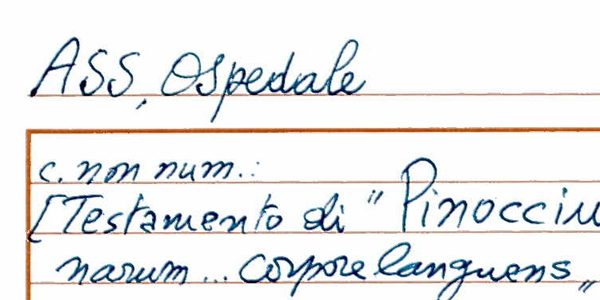 ASS, Ospedale
c. non num.:
[Testamento di "Pinocciu
narum... corpore languens"